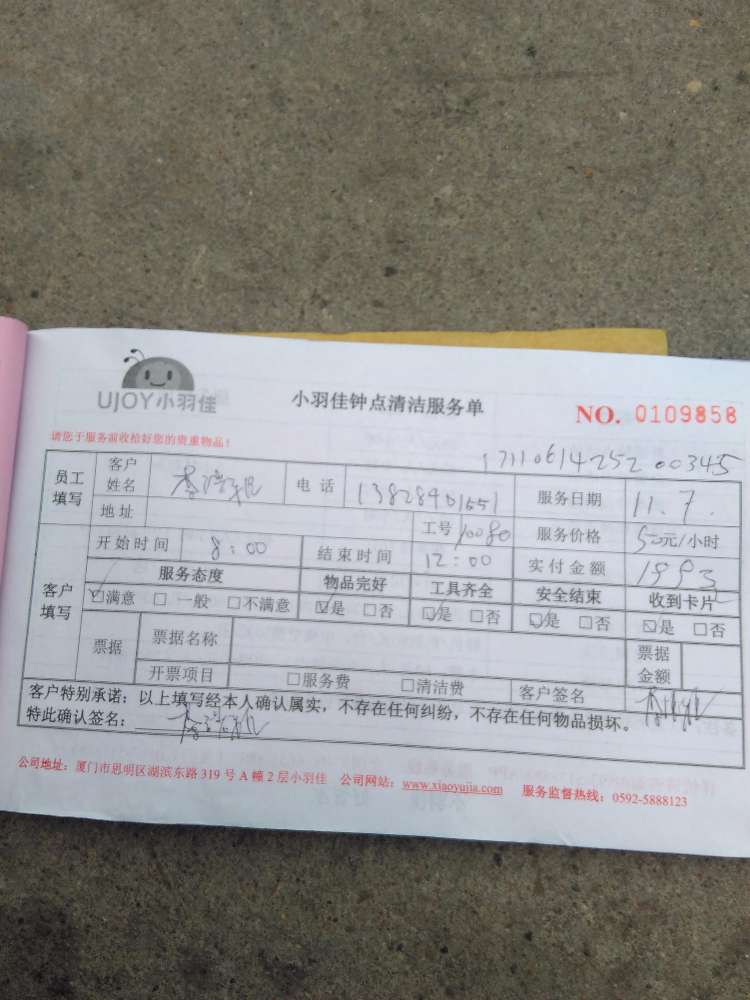 UJOY小羽佳
小羽佳钟点清洁服务单
NO. 0109858
请您于服务前收拾好您的贵重物品！
1711061425200345
员工填写 客户姓名 李 电话 服务日期 11.7.
地址 工号 10080 服务价格 50元/小时
开始时间 8:00 结束时间 12:00 实付金额
客户填写 服务态度 物品完好 工具齐全 安全结束 收到卡片
☑满意 □一般 □不满意 ☑是 □否 ☑是 □否 ☑是 □否 ☑是 □否
票据 票据名称 票据金额
开票项目 □服务费 □清洁费 客户签名 李
客户特别承诺：以上填写经本人确认属实，不存在任何纠纷，不存在任何物品损坏。
特此确认签名： 李
公司地址：厦门市思明区湖滨东路 319 号 A 幢 2 层小羽佳 公司网站：www.xiaoyujia.com 服务监督热线：0592-5888123